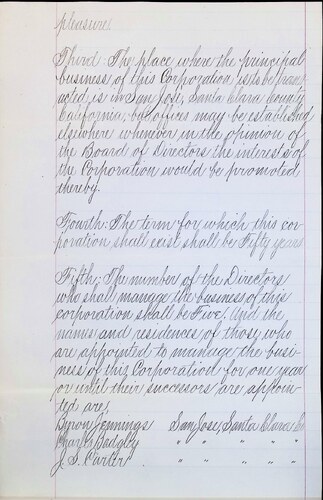 pleasure.
Third: The place where the principal
business of this Corporation is to be trans
acted, is in San Jose, Santa Clara County
California, but offices may be established
elsewhere whenever in the opinion of
the Board of Directors the interests of
the Corporation would be promoted
thereby.
Fourth: The term for which this cor-
poration shall exist shall be Fifty years
Fifth: The number of the Directors
who shall manage the business of this
corporation shall be Five. And the
names and residences of those who
are appointed to manage the busi-
ness of this Corporation for one year
or until their successors are appoin-
ted are,
Byron Jennings San Jose, Santa Clara Co
Char's Badgley " " " "
J. S. Carter " " " "